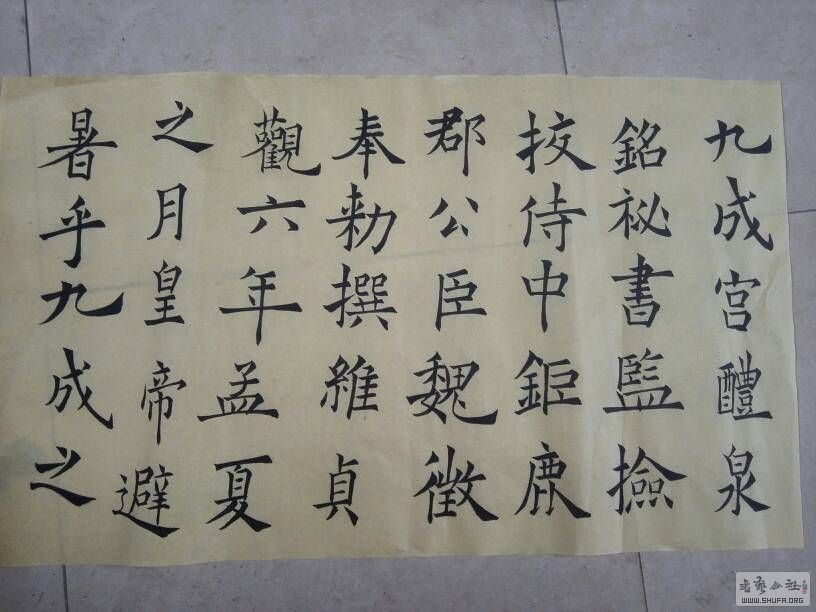 九成宮醴泉
銘祕書監撿
挍侍中鉅鹿
郡公臣魏徵
奉勑撰維貞
觀六年孟夏
之月皇帝避
暑乎九成之
書藝公社
WWW.SHUFA.ORG